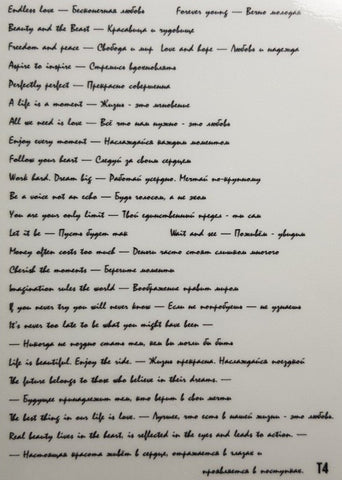 Endless love — Бесконечная любовь Forever young — Вечно молодая
Beauty and the Beast — Красавица и чудовище
Freedom and peace — Свобода и мир Love and hope — Любовь и надежда
Aspire to inspire — Стремись вдохновлять
Perfectly perfect — Прекрасно совершенна
A life is a moment — Жизнь - это мгновение
All we need is love — Всё что нам нужно - это любовь
Enjoy every moment — Наслаждайся каждым моментом
Follow your heart — Следуй за своим сердцем
Work hard. Dream big — Работай усердно. Мечтай по-крупному
Be a voice not an echo — Будь голосом, а не эхом
You are your only limit — Твой единственный предел - ты сам
Let it be — Пусть будет так Wait and see — Поживём - увидим
Money often costs too much — Деньги часто стоят слишком многого
Cherish the moments — Берегите моменты
Imagination rules the world — Воображение правит миром
If you never try you will never know — Если не попробуешь — не узнаешь
It's never too late to be what you might have been —
— Никогда не поздно стать тем, кем вы могли бы быть
Life is beautiful. Enjoy the ride. — Жизнь прекрасна. Наслаждайся поездкой
The future belongs to those who believe in their dreams. —
— Будущее принадлежит тем, кто верит в свои мечты
The best thing in our life is love. — Лучшее, что есть в нашей жизни - это любовь.
Real beauty lives in the heart, is reflected in the eyes and leads to action. —
— Настоящая красота живёт в сердце, отражается в глазах и
проявляется в поступках. T4